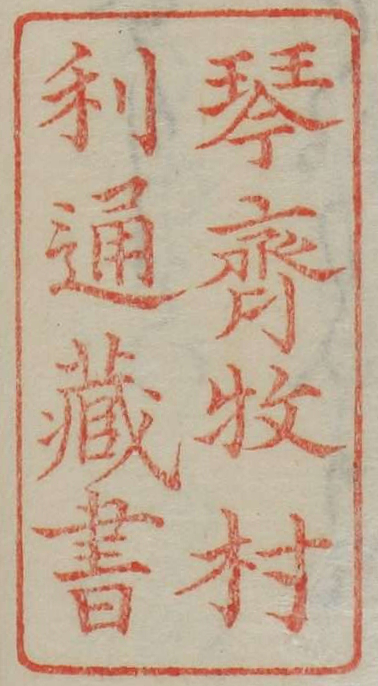 琴齊牧村
利通藏書